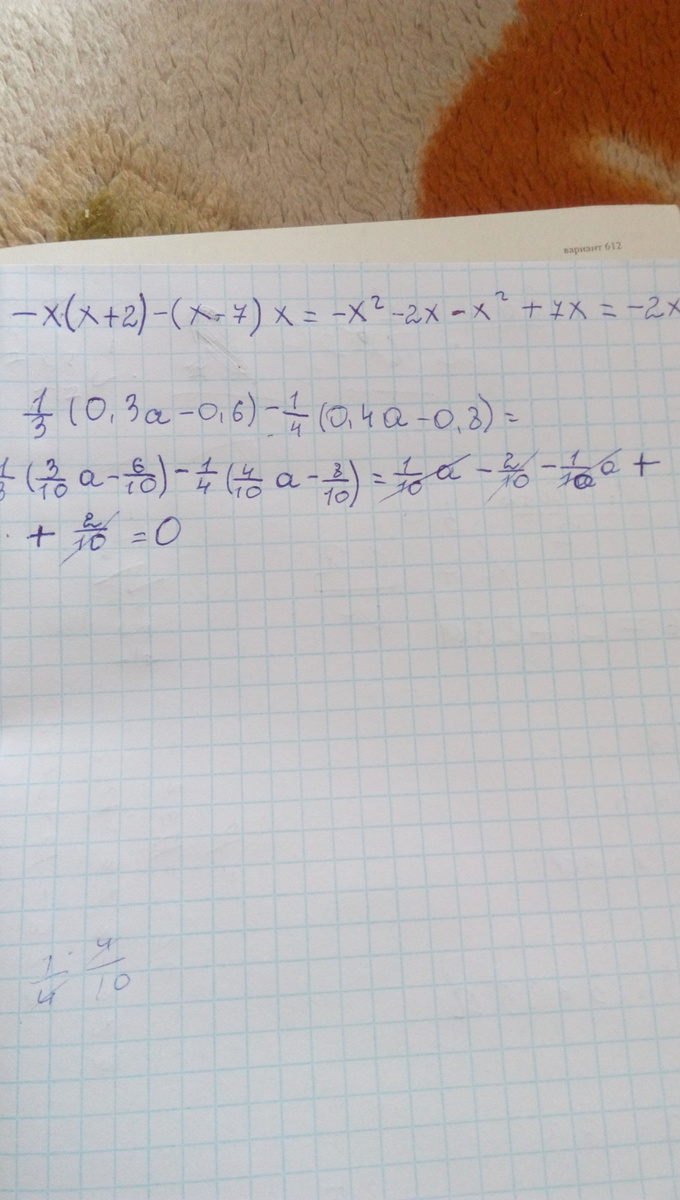 вариант 612
-x(x+2)-(x-7)x = -x² -2x - x² + 7x = -2x
1/3 (0,3a-0,6) - 1/4 (0,4a-0,8) =
1/3 (3/10 a - 6/10) - 1/4 (4/10 a - 8/10) = 1/10 a - 2/10 - 1/10 a +
+ 2/10 = 0
1/4 · 4/10